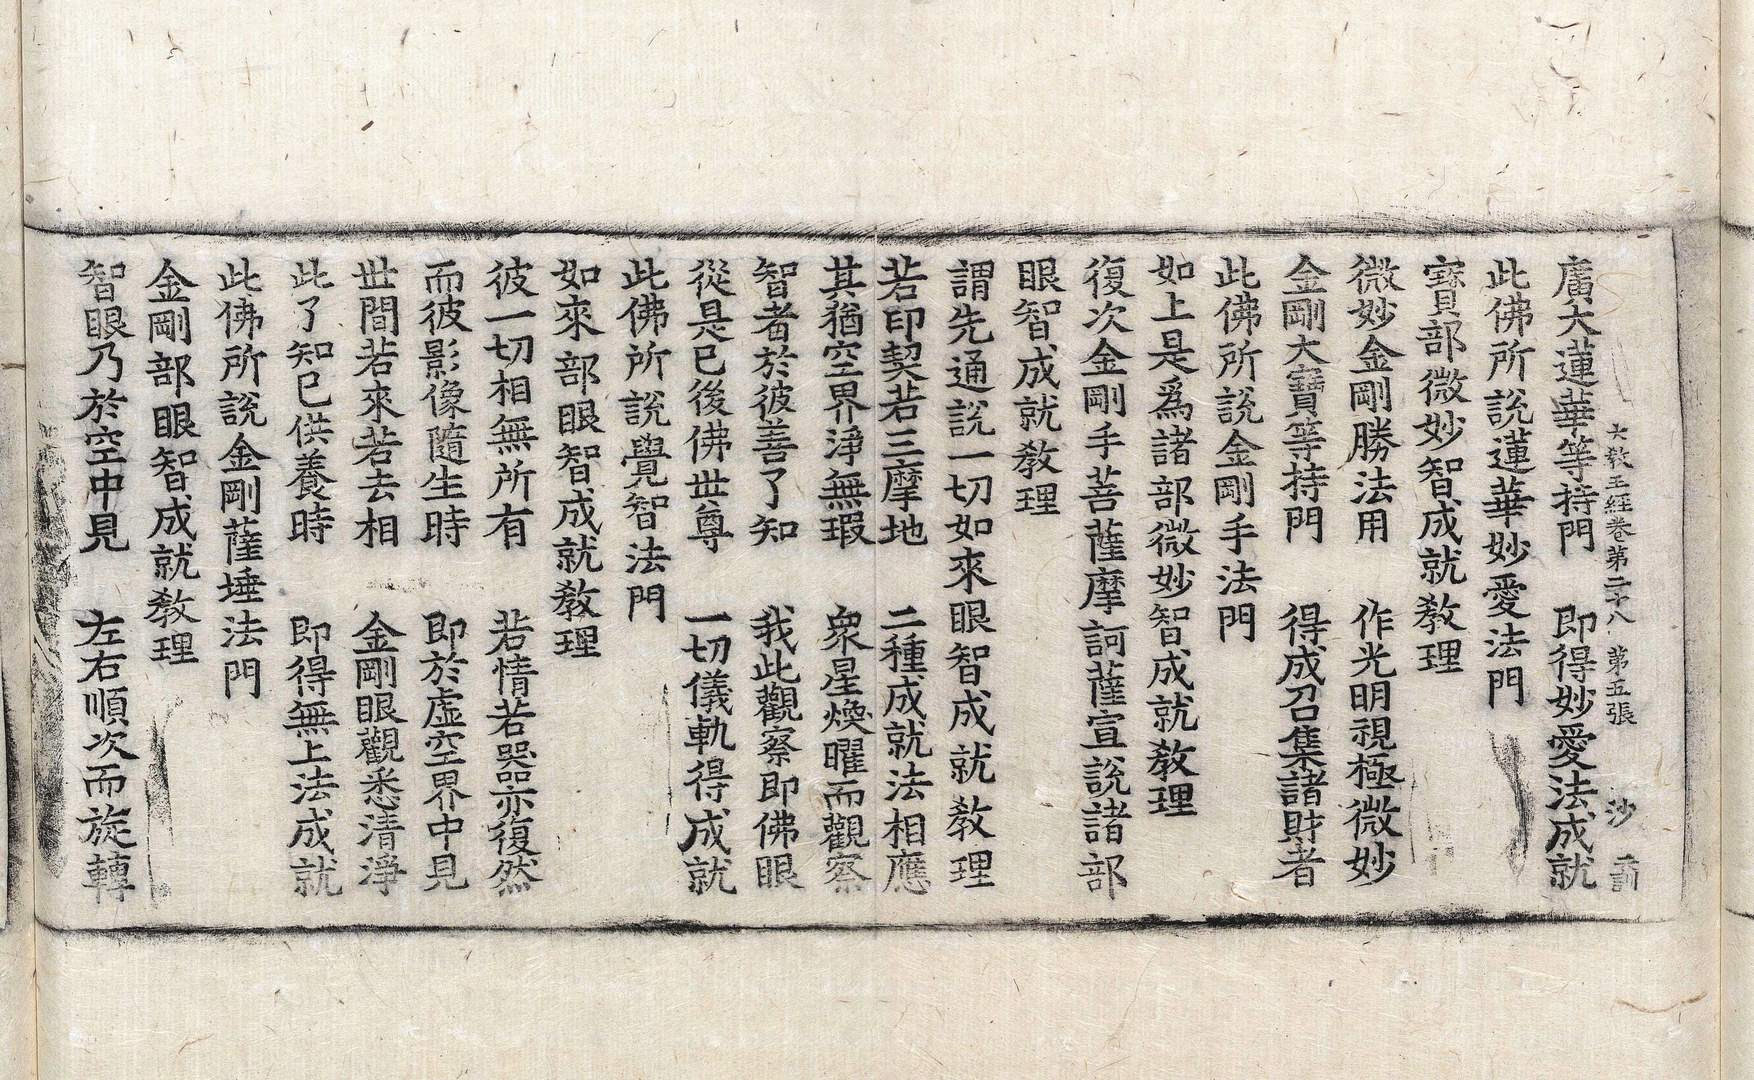 大教王經卷第二十八　第五張　沙
廣大蓮華等持門　即得妙愛法成就
此佛所說蓮華妙愛法門
寶部微妙智成就教理
微妙金剛勝法用　作光明視極微妙
金剛大寶等持門　得成召集諸財者
此佛所說金剛手法門
如上是爲諸部微妙智成就教理
復次金剛手菩薩摩訶薩宣說諸部
眼智成就教理
謂先通說一切如來眼智成就教理
若印契若三摩地　二種成就法相應
其猶空界淨無瑕　衆星煥曜而觀察
智者於彼善了知　我此觀察即佛眼
從是已後佛世尊　一切儀軌得成就
此佛所說覺智法門
如來部眼智成就教理
彼一切相無所有　若情若器亦復然
而彼影像隨生時　即於虛空界中見
世間若來若去相　金剛眼觀悉清淨
此了知已供養時　即得無上法成就
此佛所說金剛薩埵法門
金剛部眼智成就教理
智眼乃於空中見　左右順次而旋轉